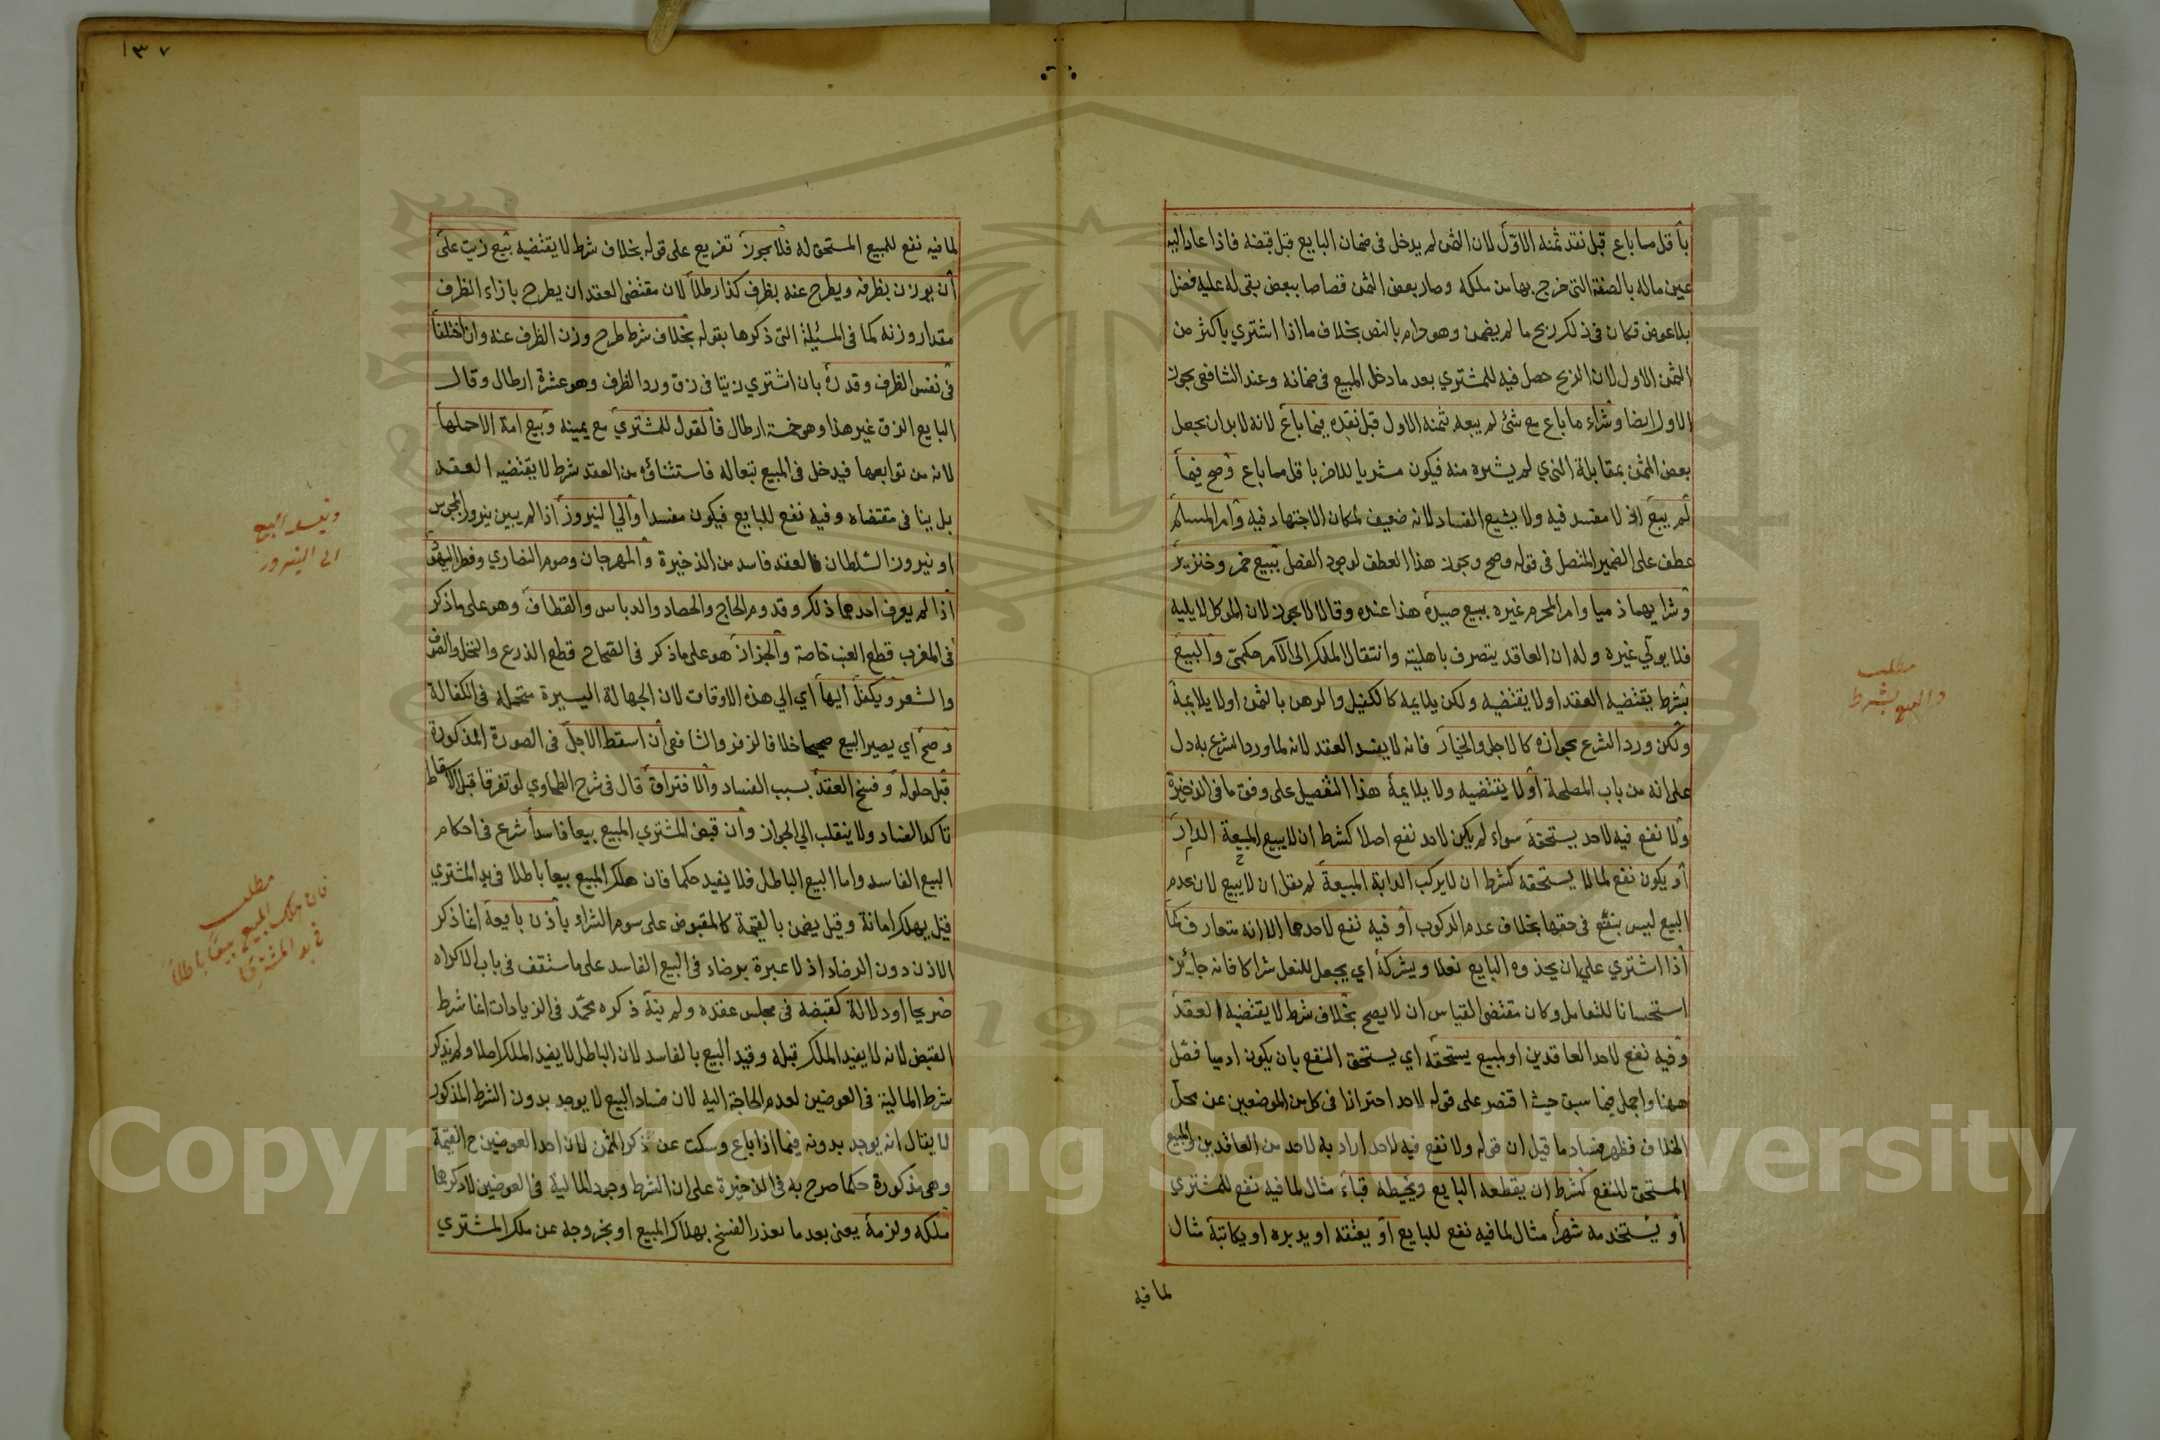 بأقل مما باع قبل نقد ثمنه الاول لان الثمن لم يدخل في ضمان البايع قبل قبضه فاذا عاد اليه
عين ماله بالصفة التي خرج بها من ملكه وصار بعض الثمن قصاصا ببعض بقي له عليه فضل
بلا عوض فكان في ذلك ربح ما لم يضمن وهو حرام بالنص بخلاف ما اذا اشتري باكثر من
الثمن الاول لان الربح حصل فيه للمشتري بعد ما دخل المبيع في ضمانه وعند الشافعي يجوز
الاول ايضا وشراء ما باع مع شئ لم يبعه بثمنه الاول قبل نقده فيما باع لانه لا بد ان يجعل
بعض الثمن بمقابلة الذي لم يشتره منه فيكون مشتريا للاخر باقل مما باع وصح فيما
لم يبع اذ لا مفسد فيه ولا يشيع الفساد لانه ضعيف لمكان الاجتهاد فيه وامر المسلم
عطف على الضمير المتصل في قوله وصح ويجوز هذا العطف لوجود الفصل ببيع خمر وخنزير
وشرايهما ذميا وامر المحرم غيره ببيع صيده هذا عنده وقالا لا يجوز لان الموكل لا يليه
فلا يولي غيره وله ان العاقد يتصرف باهليته وانتقال الملك الى الآمر حكمي والبيع
بشرط يقتضيه العقد او لا يقتضيه ولكن يلايمه كالكفيل والرهن بالثمن او لا يلايمه
ولكن ورد الشرع بجوازه كالاجل والخيار فانه لا يفسد العقد لانه لما ورد الشرع به دل
على انه من باب المصلحة أو لا يقتضيه ولا يلايمه هذا التفصيل على وفق ما في الذخيرة
ولا نفع فيه لاحد يستحقه سواء لم يكن لاحد نفع اصلا كشرط ان لا يبيع المبيعة الدار
أو يكون نفع لما لا يستحقه كشرط ان لا يركب الدابة المبيعة لم يقل ان لا يبيع لان عدم
البيع ليس بنفع في حقها بخلاف عدم الركوب أو فيه نفع لاحدهما الا انه متعارف كما
اذا اشتري على ان يحذوه البايع نعلا ويشركه اي يجعل للنعل شراكا فانه جائز
استحسانا للتعامل وكان مقتضى القياس ان لا يصح بخلاف شرط لا يقتضيه العقد
وفيه نفع لاحد العاقدين او لمبيع يستحقه اي يستحق النفع بان يكون ادميا فصل
ههنا واجمل فيما سبق حيث اقتصر على قوله لاحد احترازا في كل من الموضعين عن محل
الخلاف فظهر فساد ما قيل ان قوله ولا نفع فيه لاحد اراد به لاحد من العاقدين والمبيع
المستحق للنفع كشرط ان يقطعه البايع ويخيطه قباء مثال لما فيه نفع للمشتري
أو يستخدمه شهرا مثال لما فيه نفع للبايع أو يعتقه او يدبره او يكاتبه مثال
لما فيه
مطلب
البيع بشرط
١٣٧
لما فيه نفع للمبيع المستحق له فلا يجوز تفريع على قوله بخلاف شرط لا يقتضيه بيع زيت على
أن يوزن بظرفه ويطرح عنه بظرف كذا رطلا لان مقتضى العقد ان يطرح بازاء الظرف
مقدار وزنه كما في المسئلة التي ذكرها بقوله بخلاف شرط طرح وزن الظرف عنه وان اختلفا
في نفس الظرف وقدره بان اشتري زيتا في زق ورد الظرف وهو عشرة ارطال وقال
البايع الزق غير هذا وهو خمسة ارطال فالقول للمشتري مع يمينه وبيع امة الا حملها
لانه من توابعها فيدخل في المبيع تبعا له فاستثناؤه من العقد شرط لا يقتضيه العقد
بل ينافي مقتضاه وفيه نفع للبايع فيكون مفسدا أو الي النيروز اذا لم يبين نيروز المجوس
او نيروز السلطان فالعقد فاسد من الذخيرة والمهرجان وصوم النصاري وفطر اليهود
اذا لم يعرف احدهما ذلك وقدوم الحاج والحصاد والدياس والقطاف وهو على ما ذكر
في المغرب قطع العنب خاصة والجزاز هو على ما ذكر في الصحاح قطع الزرع والنخل والصوف
والشعر ويكفل اليها اي الي هذه الاوقات لان الجهالة اليسيرة متحملة في الكفالة
وصح اي يصير البيع صحيحا خلافا لزفر والشافعي أن اسقط الاجل في الصورة المذكورة
قبل حلوله وفسخ العقد بسبب الفساد والافتراق قال في شرح الطحاوي لو تفرقا قبل الاسقاط
تاكد الفساد ولا ينقلب الي الجواز وأن قبض المشتري المبيع بيعا فاسدا شرع في احكام
البيع الفاسد واما البيع الباطل فلا يفيد حكما فان هلك المبيع بيعا باطلا في يد المشتري
قيل يهلك امانة وقيل يضمن بالقيمة كالمقبوض على سوم الشراء بأذن بايعه انما ذكر
الاذن دون الرضاء اذ لا عبرة برضاء في البيع الفاسد على ما ستقف في باب الاكراه
صريحا او دلالة كقبضه في مجلس عقده ولم ينه ذكره محمد في الزيادات انما شرط
القبض لانه لا يفيد الملك قبله وقيد البيع بالفاسد لان الباطل لا يفيد الملك اصلا ولم يذكر
شرط المالية في العوضين لعدم الحاجة اليه لان فساد البيع لا يوجد بدون الشرط المذكور
لا يقال انه يوجد بدونه فيما اذا باع وسكت عن ذكر الثمن لان احد العوضين ح القيمة
وهي مذكورة حكما صرح به في الذخيرة على ان الشرط وجود المالية في العوضين لا ذكرهما
ملكه ولزمه يعني بعد ما تعذر الفسخ بهلاك المبيع او بخروجه عن ملك المشتري
ويفسد البيع
الى النيروز
مطلب
فان هلك المبيع بيعا باطلا
في يد المشتري
Copyright © King Saud University
195